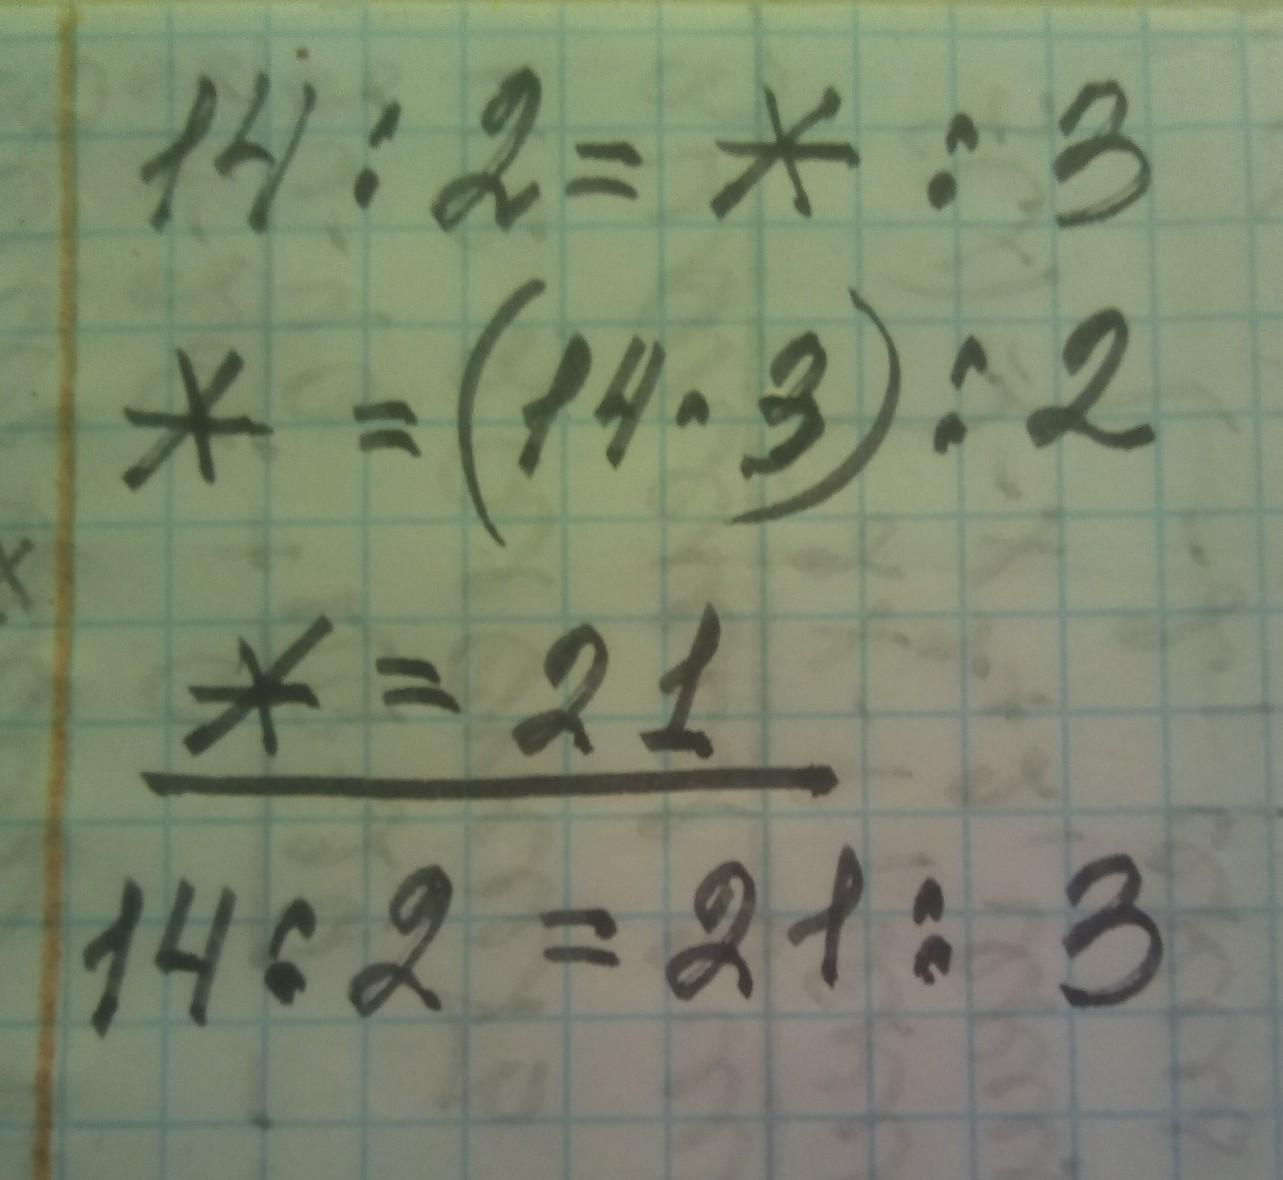 14 : 2 = * : 3
* = (14 · 3) : 2
* = 21
14 : 2 = 21 : 3